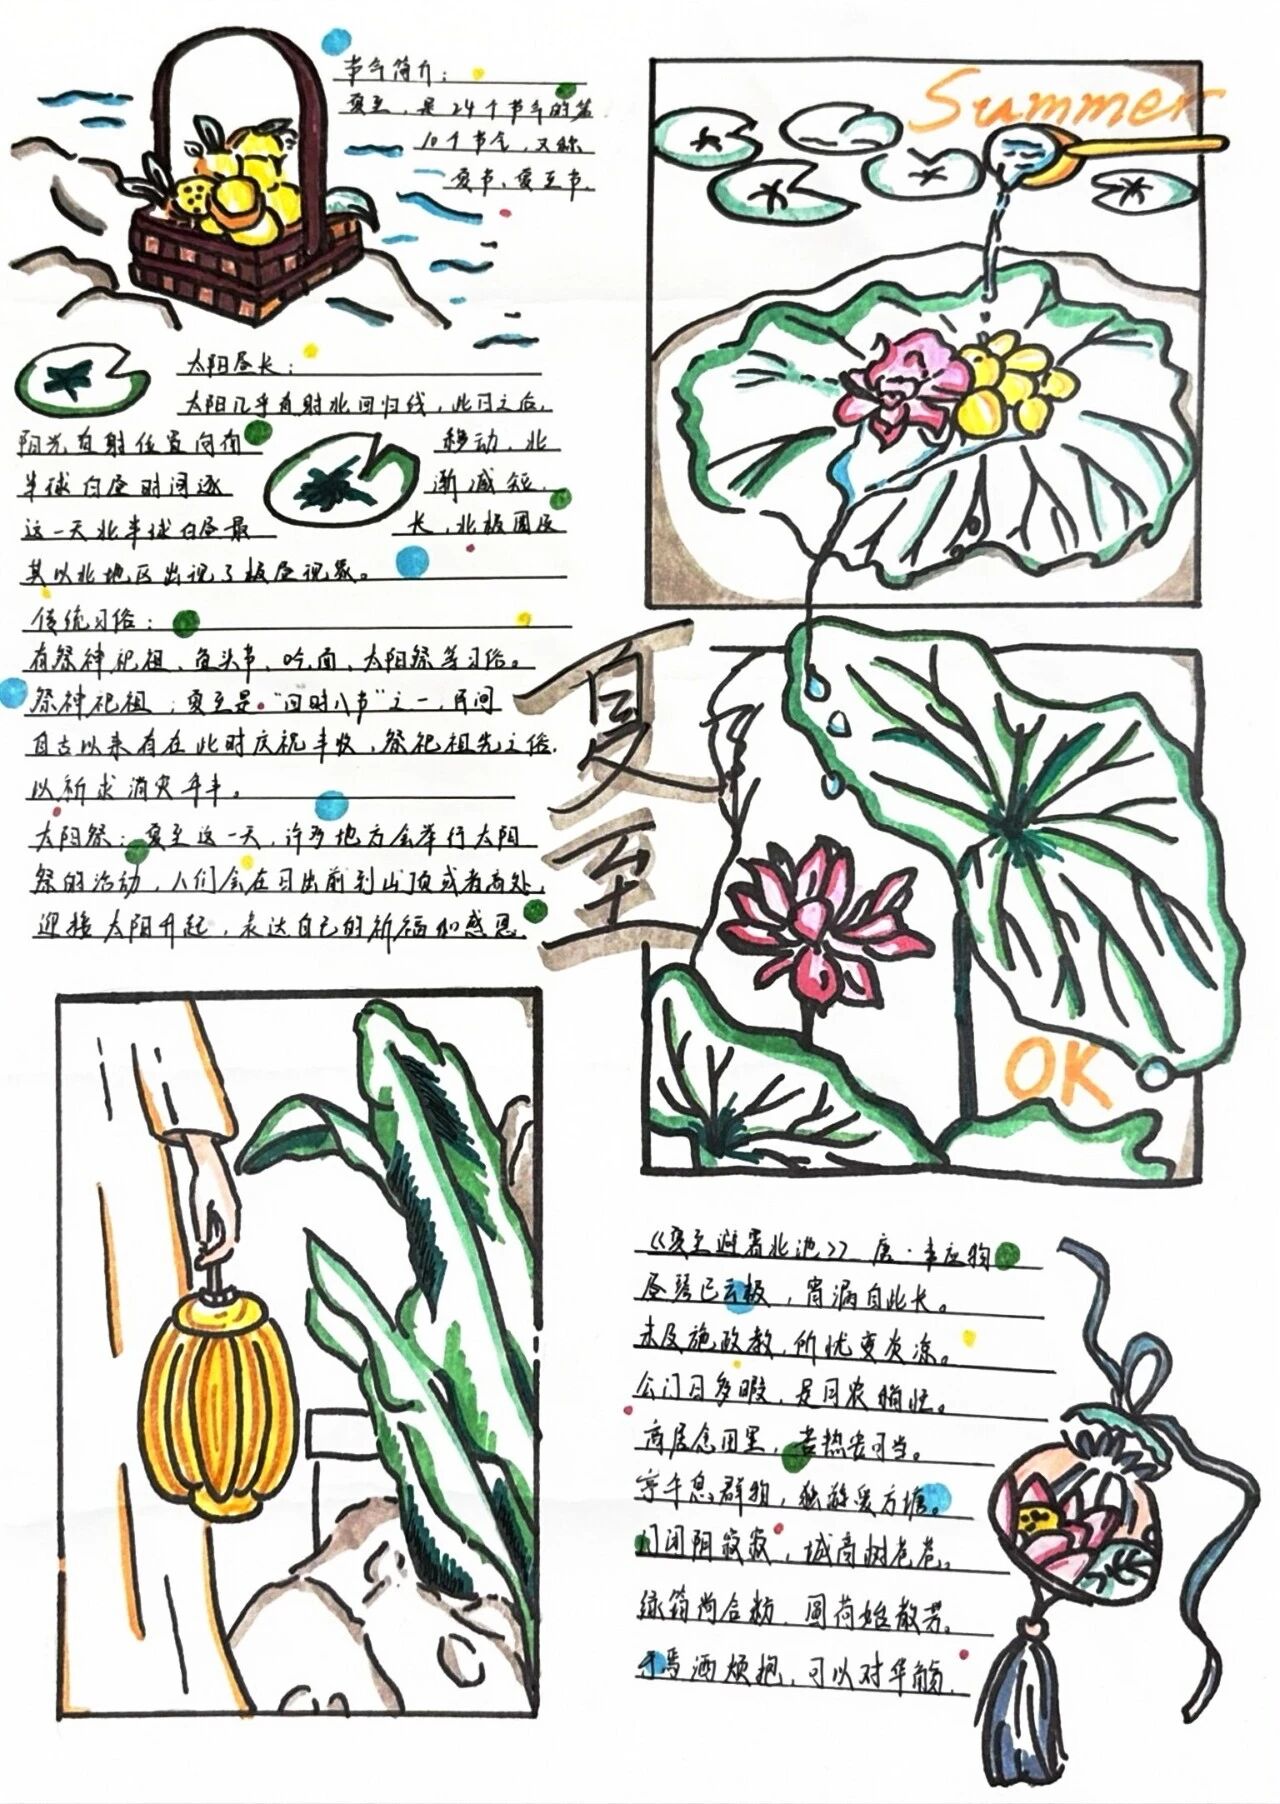 节气简介：
夏至，是24个节气的第
10个节气，又称
夏节、夏至节。
太阳昼长：
太阳几乎直射北回归线，此日之后，
阳光直射位置向南移动，北
半球白昼时间逐渐减短。
这一天北半球白昼最长，北极圈及
其以北地区出现了极昼现象。
传统习俗：
有祭神祀祖、
太阳祭等习俗。
祭神祀祖：夏至是"四时八节"之一，民间
自古以来有在此时庆祝丰收，祭祀祖先之俗，
以祈求消灾年丰。
太阳祭：夏至这一天，许多地方会举行太阳
祭的活动，人们会在日出前到山顶或者高处，
迎接太阳升起，表达自己的祈福和感恩
Summer
夏至
OK
《夏至避暑北池》 唐·韦应物
昼晷已云极，宵漏自此长。
未及施政教，所忧变炎凉。
公门日多暇，是月农稍忙。
高居念田里，苦热安可当。
亭午息群物，独游爱方塘。
门闭阴寂寂，城高树苍苍。
绿筠尚含粉，圆荷始散芳。
于焉洒烦抱，可以对华觞。